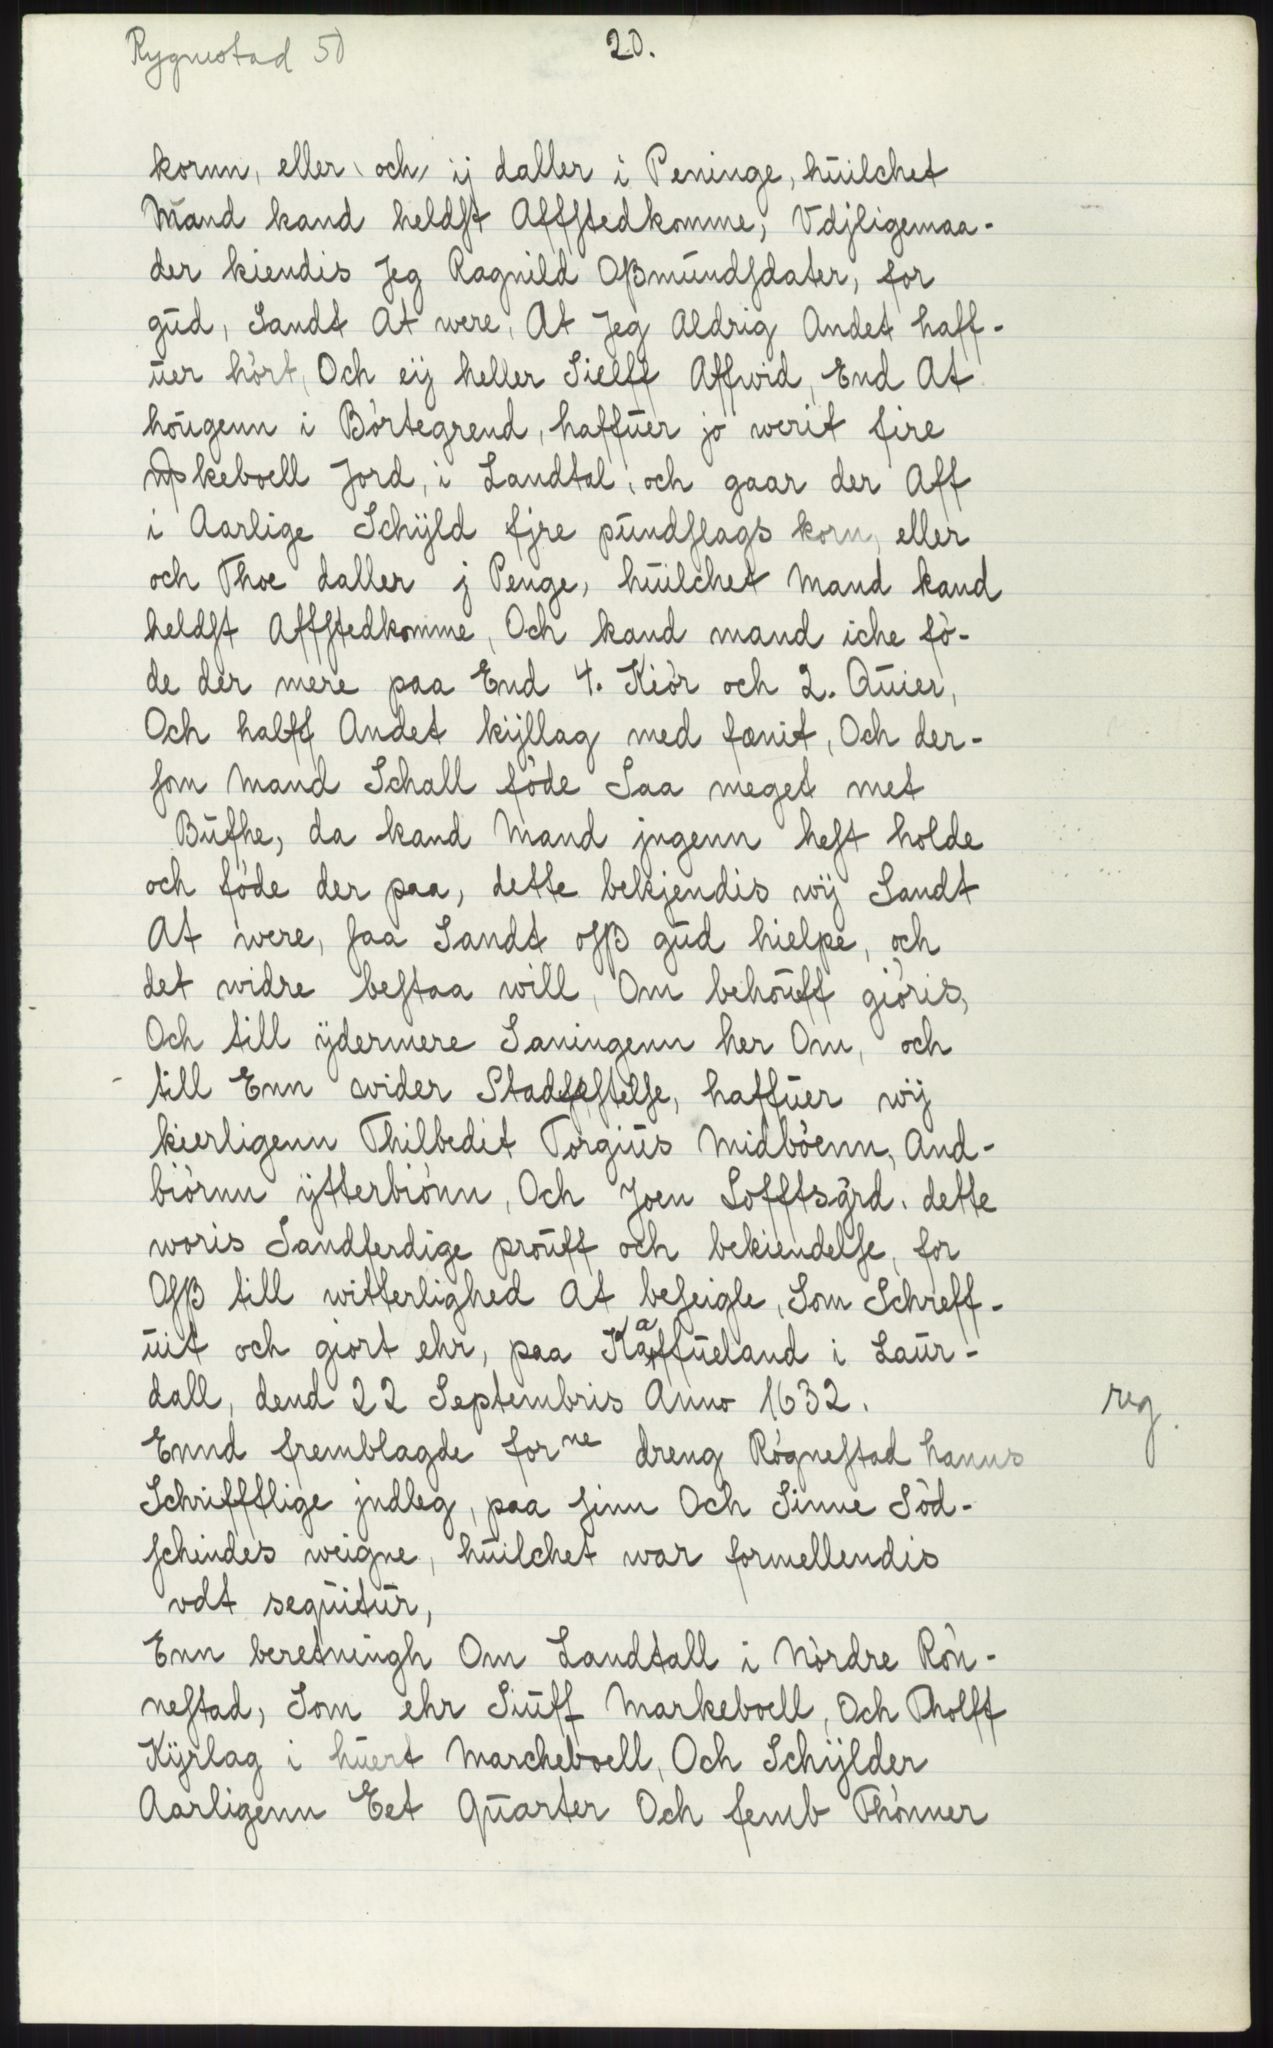 Rygnestad 50
20.
kornn, eller och ij daller i Peninge, huilchet
Mand kand heldst Affstedkomme, Vdjligemaa-
der kiendis Jeg Ragnild Oßmundsdater, for
gud, Sandt At were, At Jeg Aldrig Andet haff-
uer hört, Och eij heller Sielff Affwid, End At
hougenn i Börtegrend, haffuer jo werit fire
keboell Jord, i Landtal, och gaar der Aff
i Aarlige Schÿld fjre pundslags korn, eller
och Thoe daller j Penge, huilchet Mand kand
heldst Affstedkomme, Och kand mand iche fö-
de der mere paa End 4. Kiör och 2. Quier,
Och halff Andet kÿllag med fænit, Och der-
som Mand Schall föde Saa meget met
Bufhe, da kand Mand jngenn hest holde
och föde der paa, dette bekjendis wij Sandt
At were, saa Sandt oßß gud hielpe, och
det widre bestaa will, Om behouff giöris,
Och till ÿdermere Saningenn her Om, och
till Enn wider Stadfestelse, haffuer wij
kierligenn Thilbedit Torgius Midböenn, And-
biörnn ÿtterbiönn, Och Joen Lofftsgrd. dette
woris Sandferdige prouff och bekiendelse, for
Oßß till witterlighed At beseigle, Som Schreff-
uit och giort ehr, paa Kaffueland i Laur-
dall, dend 22 Septembris Anno 1632.
reg.
Ennd fremblagde forne dreng Rögnestad hanns
Schrifftlige jndleg, paa sinn Och Sinne Söd-
schindes weigne, huilchet war formellendis
vdt sequitur,
Enn beretningh Om Landtall i Nördre Rön-
nestad, Som ehr Siuff Markeboell, Och Tholff
Kÿrlag i huert Marcheboell, Och Schÿlder
Aarligenn Eet Quarter Och femb Thönner